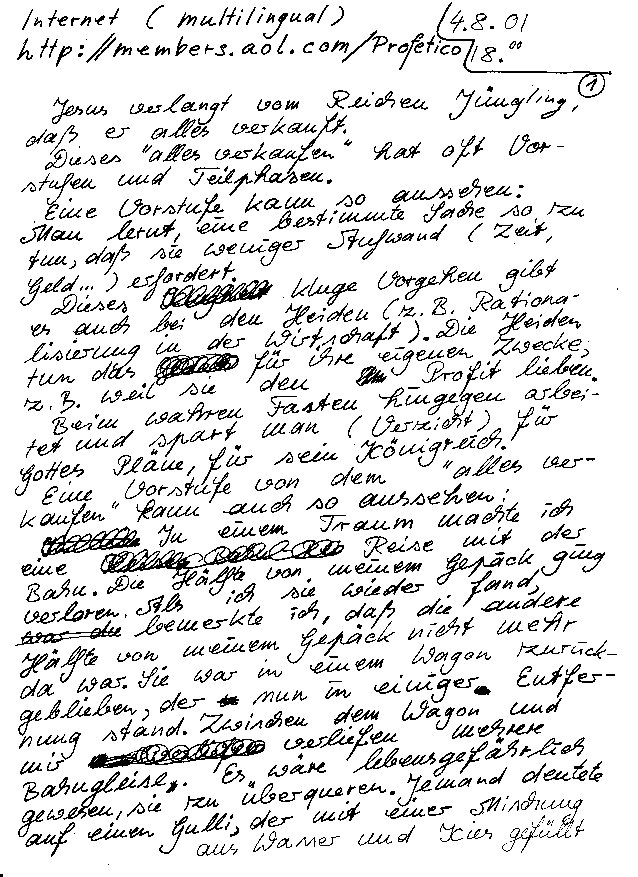 Internet ( multilingual )
4.8.01
http://members.aol.com/Profetico
18.00
1
Jesus verlangt vom Reichen Jüngling,
daß er alles verkauft.
Dieses "alles verkaufen" hat oft Vor-
stufen und Teilphasen.
Eine Vorstufe kann so aussehen:
Man lernt, eine bestimmte Sache so zu
tun, daß sie weniger Aufwand ( Zeit,
Geld...) erfordert.
Dieses kluge Vorgehen gibt
es auch bei den Heiden (z.B. Rationa-
lisierung in der Wirtschaft). Die Heiden
tun das für ihre eigenen Zwecke,
z.B. weil sie den Profit lieben.
Beim wahren Fasten hingegen arbei-
tet und spart man (Verzicht) für
Gottes Pläne, für sein Königreich.
Eine Vorstufe von dem "alles ver-
kaufen" kann auch so aussehen:
In einem Traum machte ich
eine Reise mit der
Bahn. Die Hälfte von meinem Gepäck ging
verloren. Als ich sie wieder fand,
bemerkte ich, daß die andere
Hälfte von meinem Gepäck nicht mehr
da war. Sie war in einem Wagon zurück-
geblieben, der nun in einiger Entfer-
nung stand. Zwischen dem Wagon und
mir verliefen mehrere
Bahngleise. Es wäre lebensgefährlich
gewesen, sie zu überqueren. Jemand deutete
auf einen Gulli, der mit einer Mischung
aus Wasser und Kies gefüllt